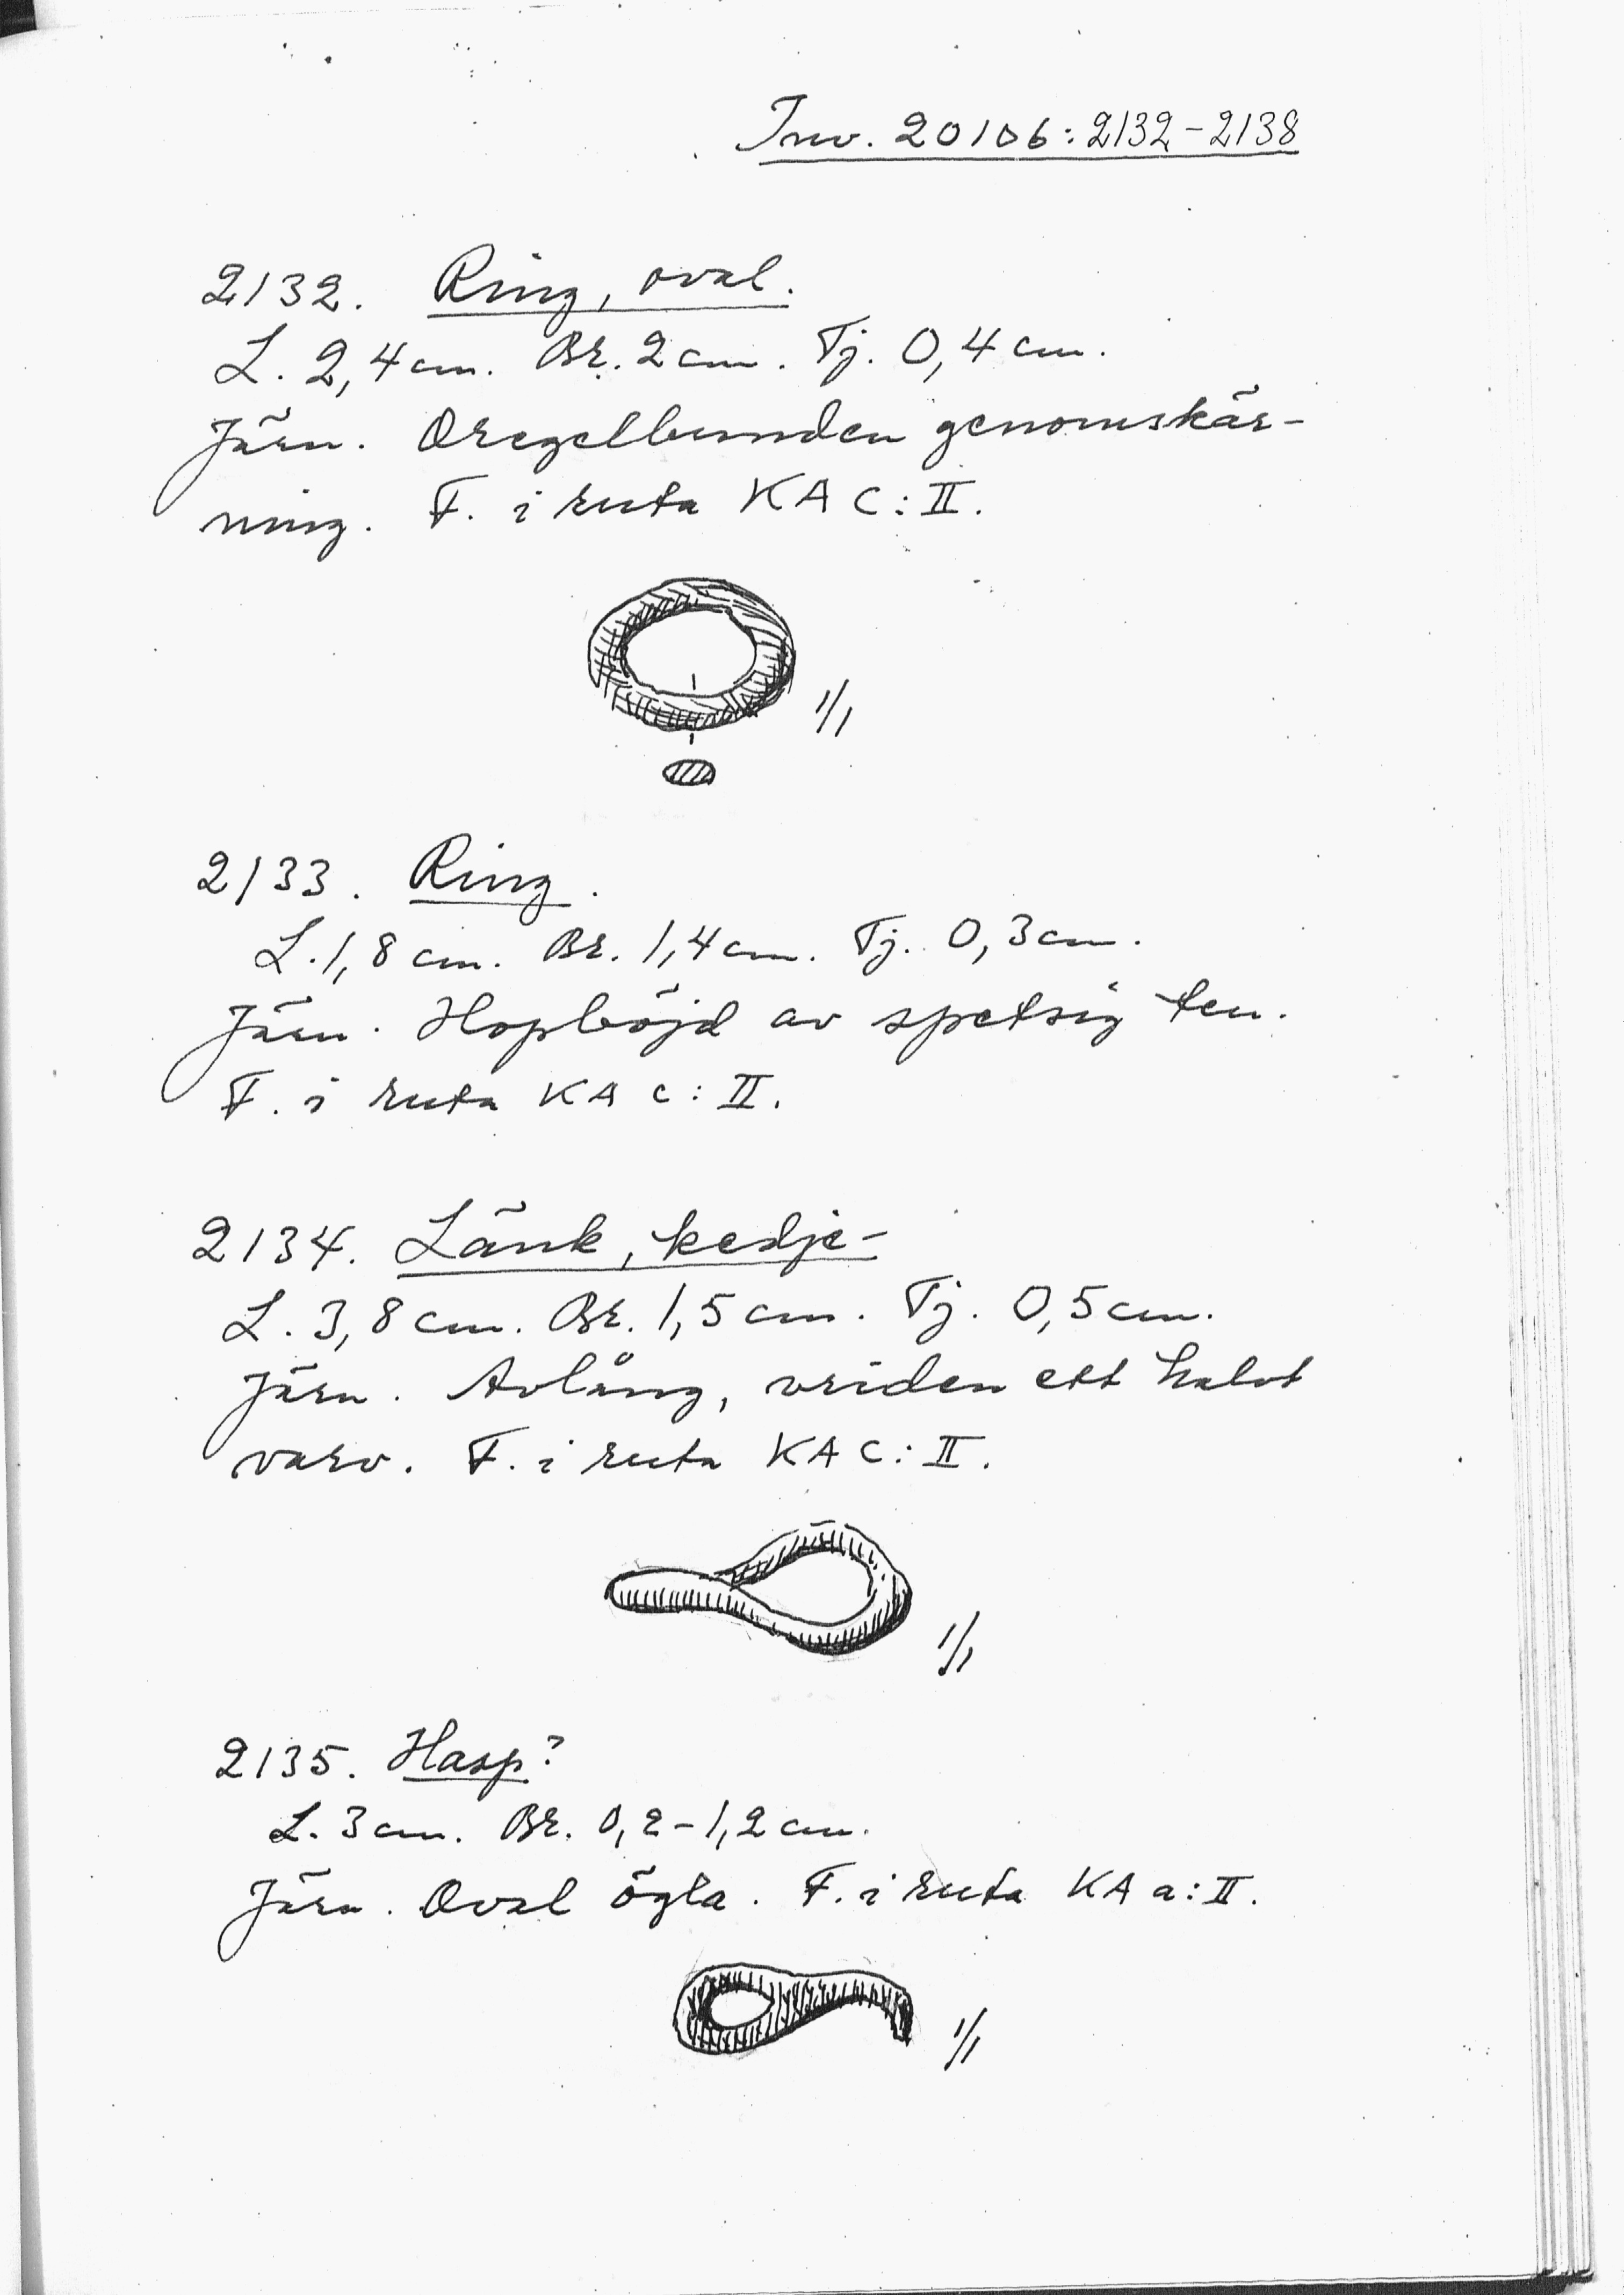 Inv. 20106:2132-2138
2132. Ring, oval.
L. 2,4 cm. Br. 2 cm. Tj. 0,4 cm.
Järn. Oregelbunden genomskär-
ning. F. i ruta KA C:II.
1/1
2133. Ring.
L. 1,8 cm. Br. 1,4 cm. Tj. 0,3 cm.
Järn. Hopböjd av spetsig ten.
F. i ruta KA C:II.
2134. Länk, kedje-
L. 3,8 cm. Br. 1,5 cm. Tj. 0,5 cm.
Järn. Avlång, vriden ett halvt
varv. F. i ruta KA C:II.
1/1
2135. Hasp?
L. 3 cm. Br. 0,2-1,2 cm.
Järn. Oval ögla. F. i ruta KA a:II.
1/1